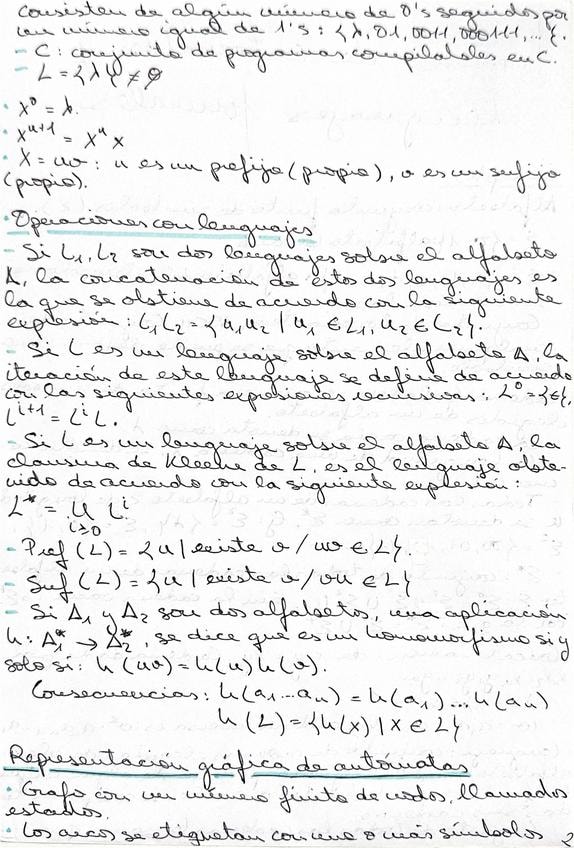 consisten de algún número de 0's seguidos por
un número igual de 1's : {λ, 01, 0011, 000111, ...}.
- C : conjunto de programas compilables en C.
- L = {λ} ≠ ∅
· x⁰ = λ.
· xⁿ⁺¹ = xⁿ x
· X = uv : u es un prefijo (propio), v es un sufijo
(propio).
· Operaciones con lenguajes
- Si L₁, L₂ son dos lenguajes sobre el alfabeto
A, la concatenación de estos dos lenguajes es
la que se obtiene de acuerdo con la siguiente
expresión : L₁L₂ = {u₁u₂ | u₁ ∈ L₁, u₂ ∈ L₂}.
- Si L es un lenguaje sobre el alfabeto A, la
iteración de este lenguaje se define de acuerdo
con las siguientes expresiones recursivas : L⁰ = {ε},
Lⁱ⁺¹ = Lⁱ L.
- Si L es un lenguaje sobre el alfabeto A, la
clausura de Kleene de L, es el lenguaje obte-
nido de acuerdo con la siguiente expresión :
L* = ∪ Lⁱ.
i≥0
- Pref (L) = {u | existe v / uv ∈ L}.
- Suf (L) = {u | existe v / vu ∈ L}
- Si A₁ y A₂ son dos alfabetos, una aplicación
h : A₁* → A₂*, se dice que es un homomorfismo si y
solo si : h(uv) = h(u) h(v).
Consecuencias : h(a₁...aₙ) = h(a₁)...h(aₙ)
h(L) = {h(x) | x ∈ L}
Representación gráfica de autómatas
· Grafo con un número finito de nodos, llamados
estados.
· Los arcos se etiquetan con uno o más símbolos
2